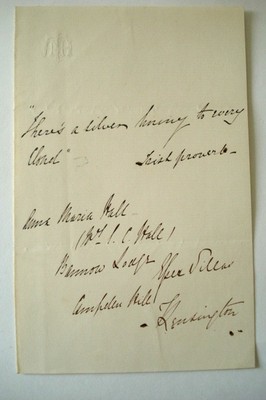 "There's a silver lining to every
Cloud" –
Irish proverb –
Anna Maria Hall –
(Mrs S. C. Hall)
Bannow Lodge
Villas
Campden Hill
Kensington